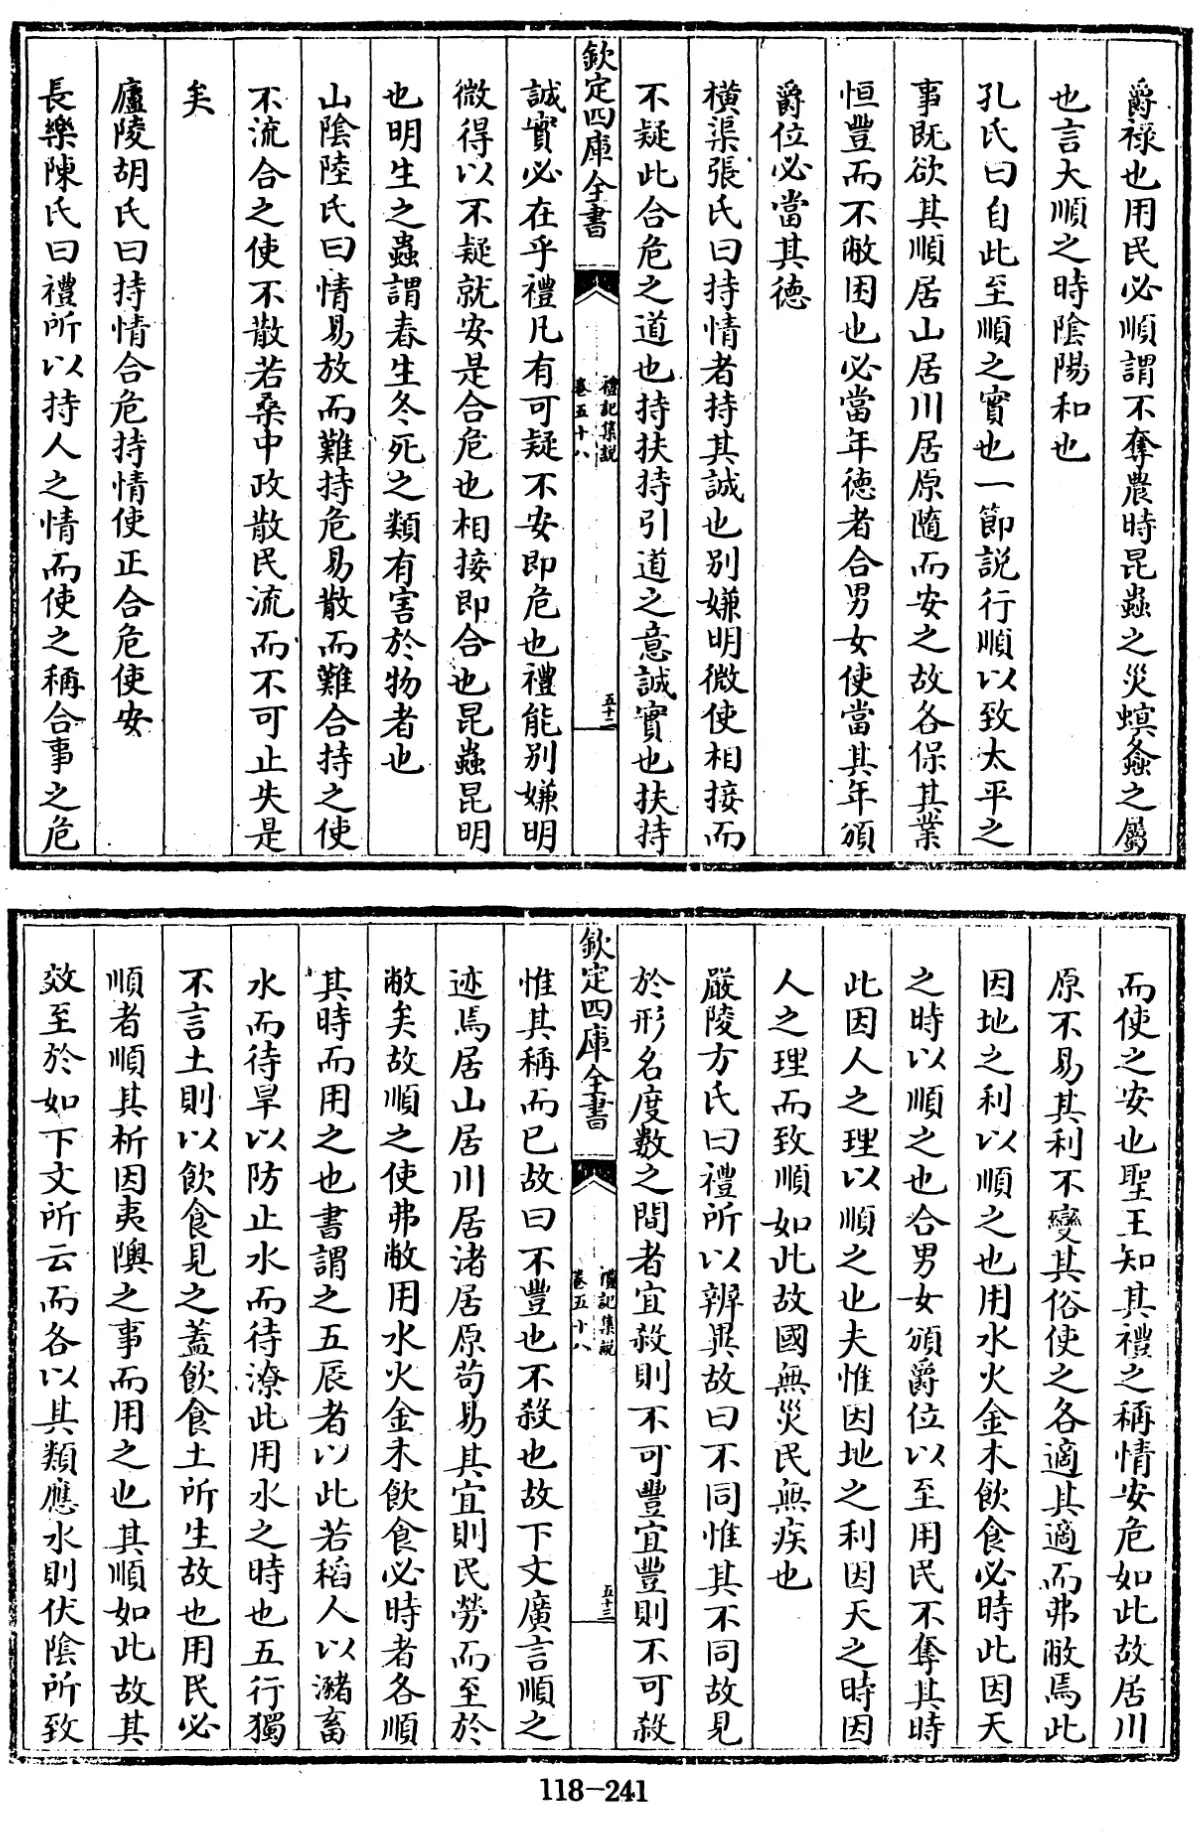 爵禄也用民必順謂不奪農時昆蟲之災螟螽之屬
也言大順之時陰陽和也
孔氏曰自此至順之實也一節説行順以致太平之
事既欲其順居山居川居原隨而安之故各保其業
恒豐而不敝困也必當年德者合男女使當其年頒
爵位必當其德
横渠張氏曰持情者持其誠也别嫌明微使相接而
不疑此合危之道也持扶持引道之意誠實也扶持
欽定四庫全書
禮記集説
卷五十八
五十二
誠實必在乎禮凡有可疑不安即危也禮能别嫌明
微得以不疑就安是合危也相接即合也昆蟲昆明
也明生之蟲謂春生冬死之類有害於物者也
山陰陸氏曰情易放而難持危易散而難合持之使
不流合之使不散若桑中政散民流而不可止失是
矣
廬陵胡氏曰持情合危持情使正合危使安
長樂陳氏曰禮所以持人之情而使之稱合事之危
而使之安也聖王知其禮之稱情安危如此故居川
原不易其利不變其俗使之各適其適而弗敝焉此
因地之利以順之也用水火金木飲食必時此因天
之時以順之也合男女頒爵位以至用民不奪其時
此因人之理以順之也夫惟因地之利因天之時因
人之理而致順如此故國無災民無疾也
嚴陵方氏曰禮所以辨異故曰不同惟其不同故見
於形名度數之間者宜殺則不可豐宜豐則不可殺
欽定四庫全書
禮記集説
卷五十八
五十三
惟其稱而已故曰不豐也不殺也故下文廣言順之
迹焉居山居川居渚居原苟易其宜則民勞而至於
敝矣故順之使弗敝用水火金木飲食必時者各順
其時而用之也書謂之五辰者以此若稻人以瀦畜
水而待旱以防止水而待潦此用水之時也五行獨
不言土則以飲食見之蓋飲食土所生故也用民必
順者順其析因夷隩之事而用之也其順如此故其
效至於如下文所云而各以其類應水則伏陰所致
118-241